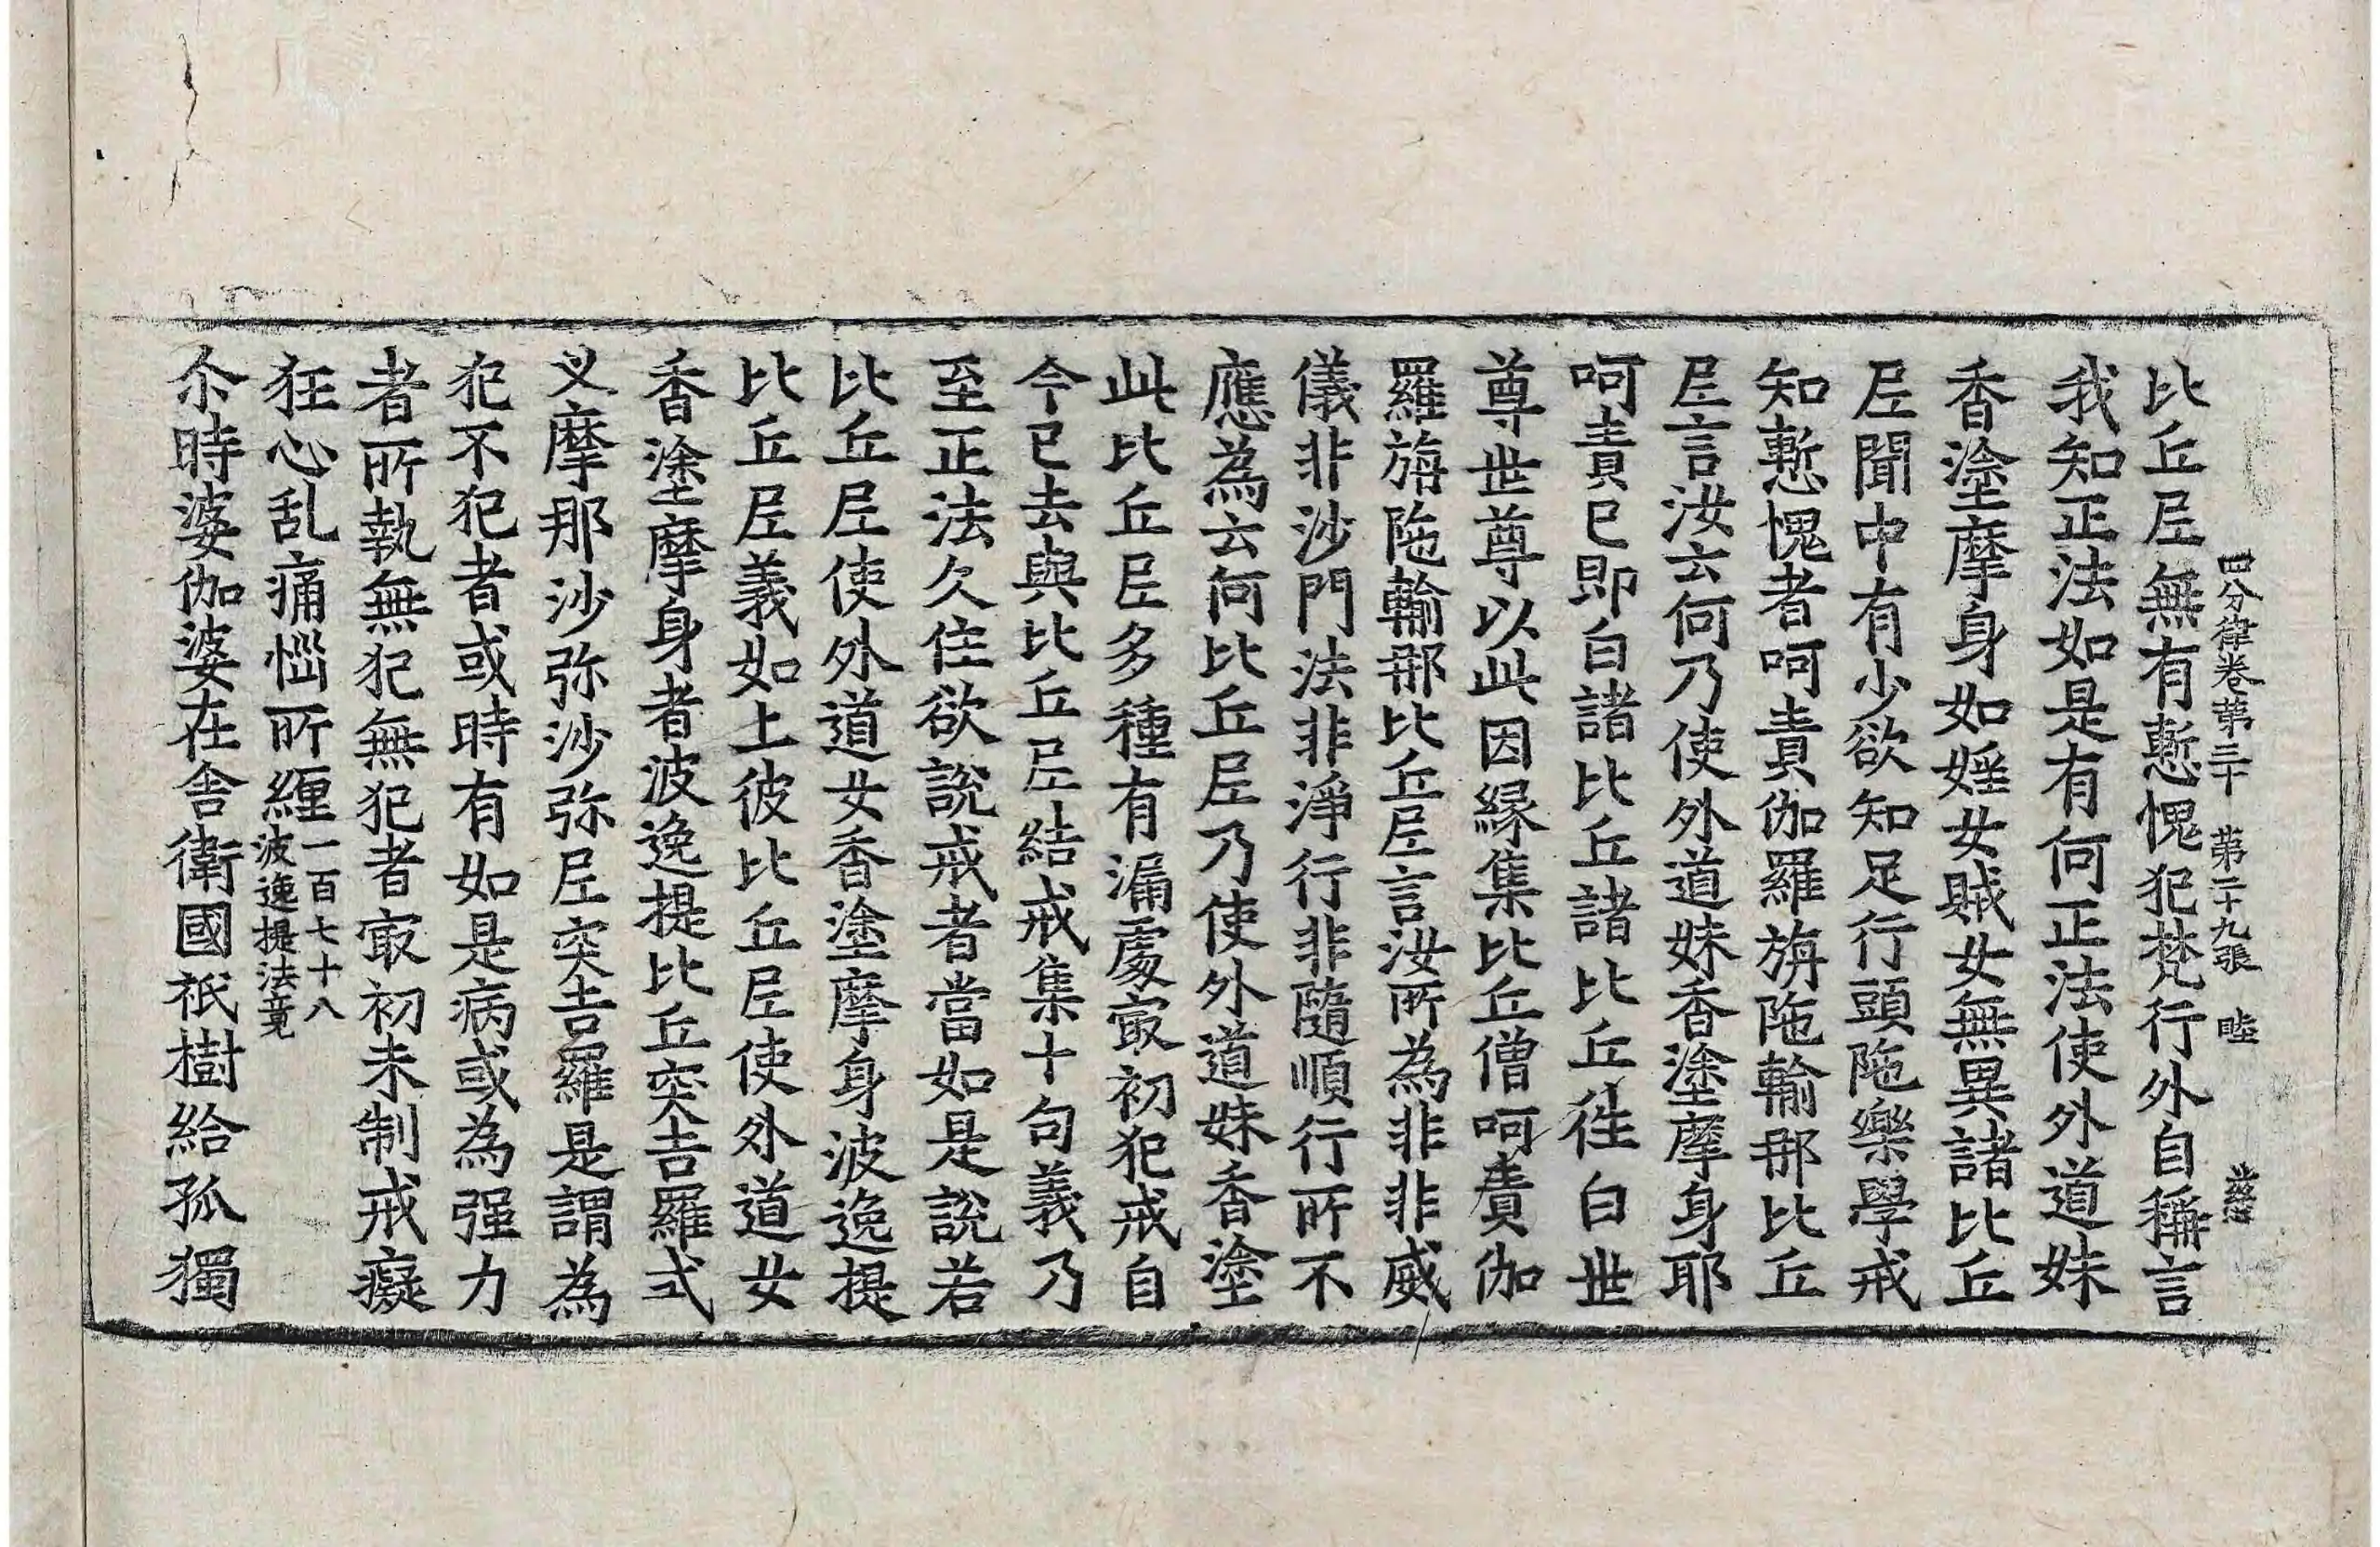 四分律卷第三十　第二十九張　睦
比丘尼無有慙愧犯梵行外自稱言
我知正法如是有何正法使外道妹
香塗摩身如婬女賊女無異諸比丘
尼聞中有少欲知足行頭陁樂學戒
知慙愧者呵責伽羅旃陁輸那比丘
尼言汝云何乃使外道妹香塗摩身耶
呵責已即白諸比丘諸比丘往白世
尊世尊以此因緣集比丘僧呵責伽
羅旃陁輸那比丘尼言汝所為非非威
儀非沙門法非淨行非隨順行所不
應為云何比丘尼乃使外道妹香塗
此比丘尼多種有漏處㝡初犯戒自
今已去與比丘尼結戒集十句義乃
至正法久住欲說戒者當如是說若
比丘尼使外道女香塗摩身波逸提
比丘尼義如上彼比丘尼使外道女
香塗摩身者波逸提比丘突吉羅式
叉摩那沙弥沙弥尼突吉羅是謂為
犯不犯者或時有如是病或為强力
者所執無犯無犯者㝡初未制戒癡
狂心乱痛惱所纏一百七十八波逸提法竟
尒時婆伽婆在舍衛國祇樹給孤獨